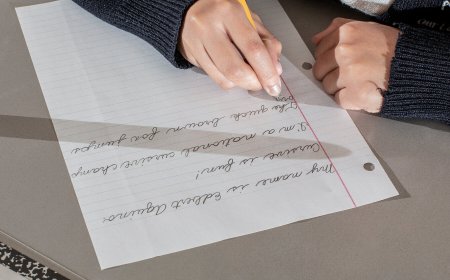 My name is Edbert Aquino
Cursive is fun!
I'm a national cursive champ
The quick brown fox jumps